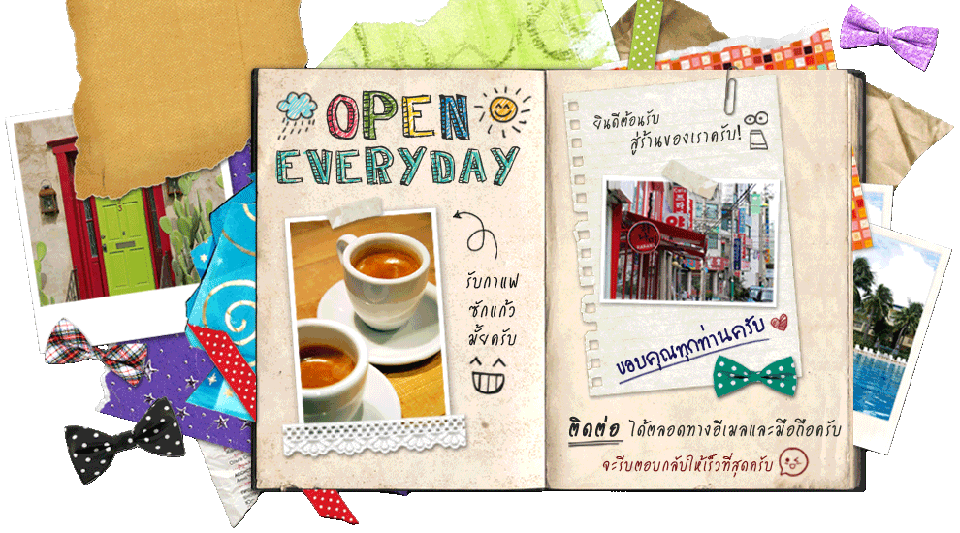 OPEN
EVERYDAY
รับกาแฟ
ซักแก้ว
มั้ยครับ
ยินดีต้อนรับ
สู่ร้านของเราครับ!
ขอบคุณทุกท่านครับ
ติดต่อ ได้ตลอดทางอีเมลและมือถือครับ
จะรีบตอบกลับให้เร็วที่สุดครับ